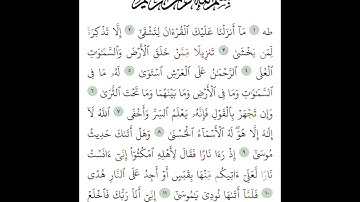 بسم الله الرحمن الرحيم
طه ١ مَآ أَنزَلْنَا عَلَيْكَ ٱلْقُرْءَانَ لِتَشْقَىٰٓ ٢ إِلَّا تَذْكِرَةً
لِّمَن يَخْشَىٰ ٣ تَنزِيلًا مِّمَّنْ خَلَقَ ٱلْأَرْضَ وَٱلسَّمَٰوَٰتِ
ٱلْعُلَى ٤ ٱلرَّحْمَٰنُ عَلَى ٱلْعَرْشِ ٱسْتَوَىٰ ٥ لَهُۥ مَا فِى
ٱلسَّمَٰوَٰتِ وَمَا فِى ٱلْأَرْضِ وَمَا بَيْنَهُمَا وَمَا تَحْتَ ٱلثَّرَىٰ ٦
وَإِن تَجْهَرْ بِٱلْقَوْلِ فَإِنَّهُۥ يَعْلَمُ ٱلسِّرَّ وَأَخْفَى ٧ ٱللَّهُ لَآ
إِلَٰهَ إِلَّا هُوَ لَهُ ٱلْأَسْمَآءُ ٱلْحُسْنَىٰ ٨ وَهَلْ أَتَىٰكَ حَدِيثُ
مُوسَىٰٓ ٩ إِذْ رَءَا نَارًا فَقَالَ لِأَهْلِهِ ٱمْكُثُوٓا۟ إِنِّىٓ ءَانَسْتُ
نَارًا لَّعَلِّىٓ ءَاتِيكُم مِّنْهَا بِقَبَسٍ أَوْ أَجِدُ عَلَى ٱلنَّارِ هُدًى
١٠ فَلَمَّآ أَتَىٰهَا نُودِىَ يَٰمُوسَىٰٓ ١١ إِنِّىٓ أَنَا۠ رَبُّكَ فَٱخْلَعْ